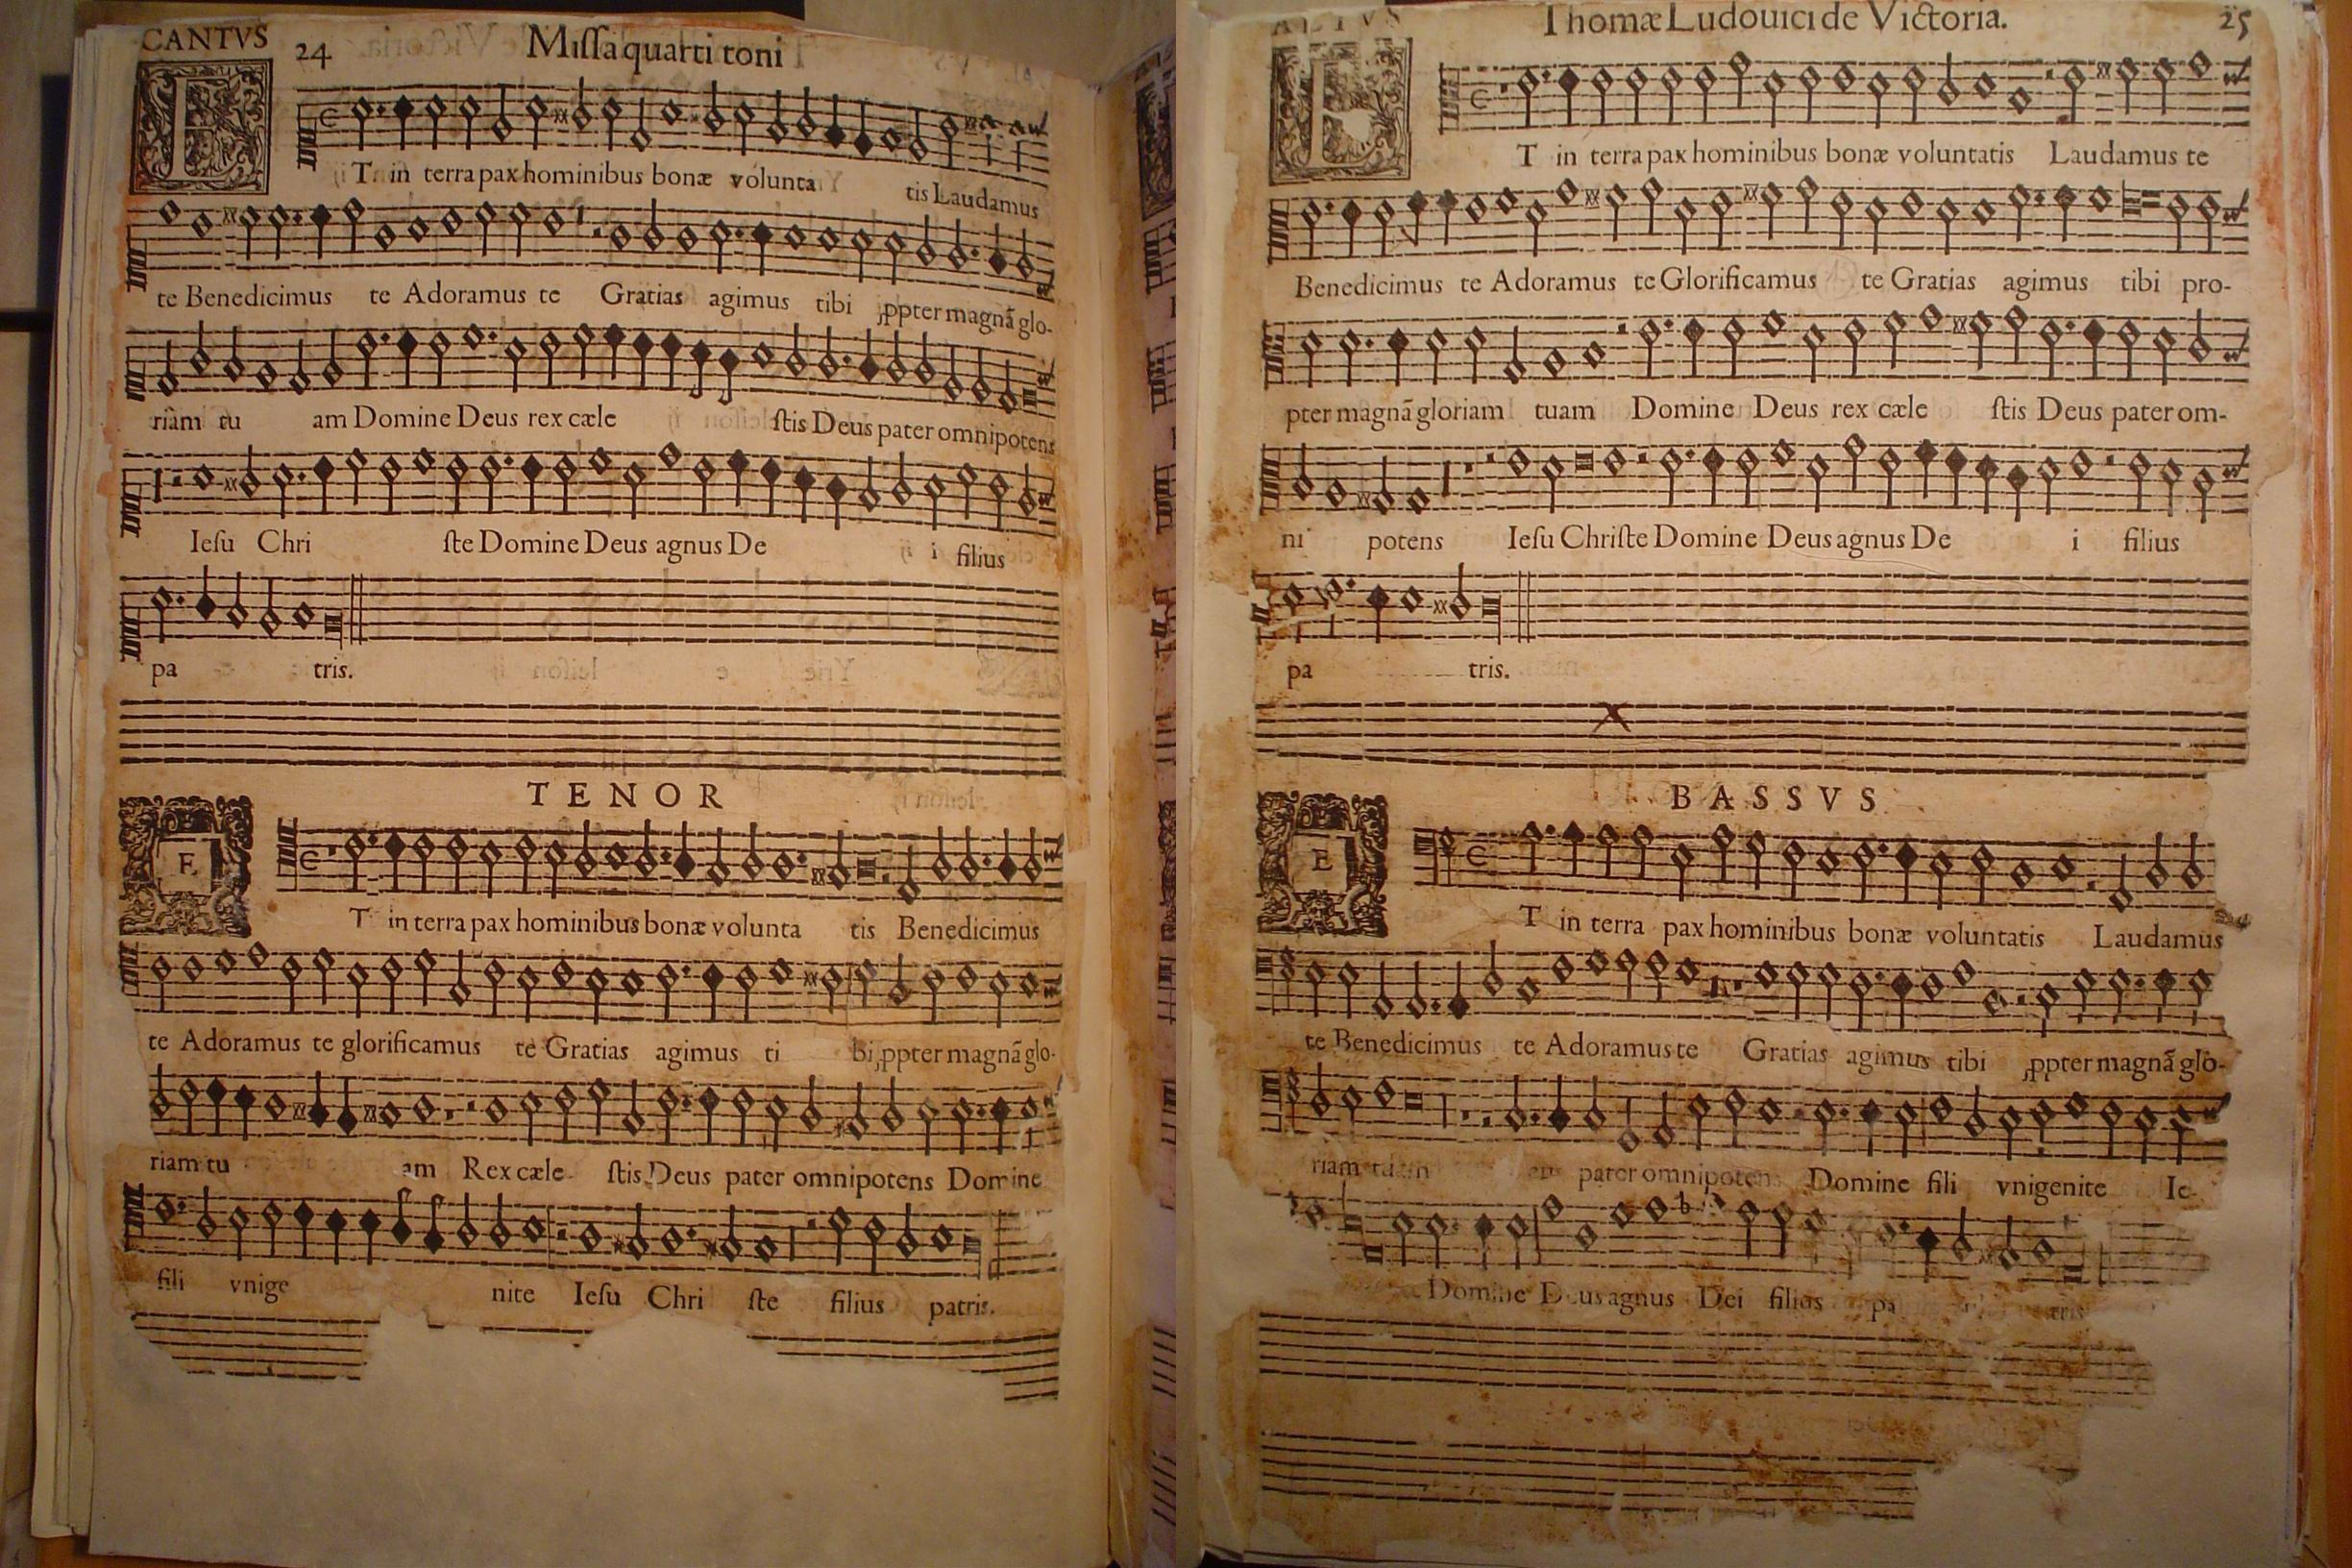 CANTVS 24 Missa quarti toni
T in terra pax hominibus bonæ volunta tis Laudamus
te Benedicimus te Adoramus te Gratias agimus tibi ꝓpter magnã glo-
riam tu am Domine Deus rex cæle stis Deus pater omnipotens
Iesu Chri ste Domine Deus agnus De i filius
pa tris.
TENOR
E
T in terra pax hominibus bonæ volunta tis Benedicimus
te Adoramus te glorificamus te Gratias agimus ti bi ꝓpter magnã glo-
riam tu am Rex cæle stis Deus pater omnipotens Domine
fili vnige nite Iesu Chri ste filius patris.
ALTVS Thomæ Ludouici de Victoria. 25
E
T in terra pax hominibus bonæ voluntatis Laudamus te
Benedicimus te Adoramus te Glorificamus te Gratias agimus tibi pro-
pter magnã gloriam tuam Domine Deus rex cæle stis Deus pater om-
ni potens Iesu Christe Domine Deus agnus De i filius
pa tris.
BASSVS
E
T in terra pax hominibus bonæ voluntatis Laudamus
te Benedicimus te Adoramus te Gratias agimus tibi ꝓpter magnã glo-
riam pater omnipotens Domine fili vnigenite Ie-
Domine Deus agnus Dei filius pa tris